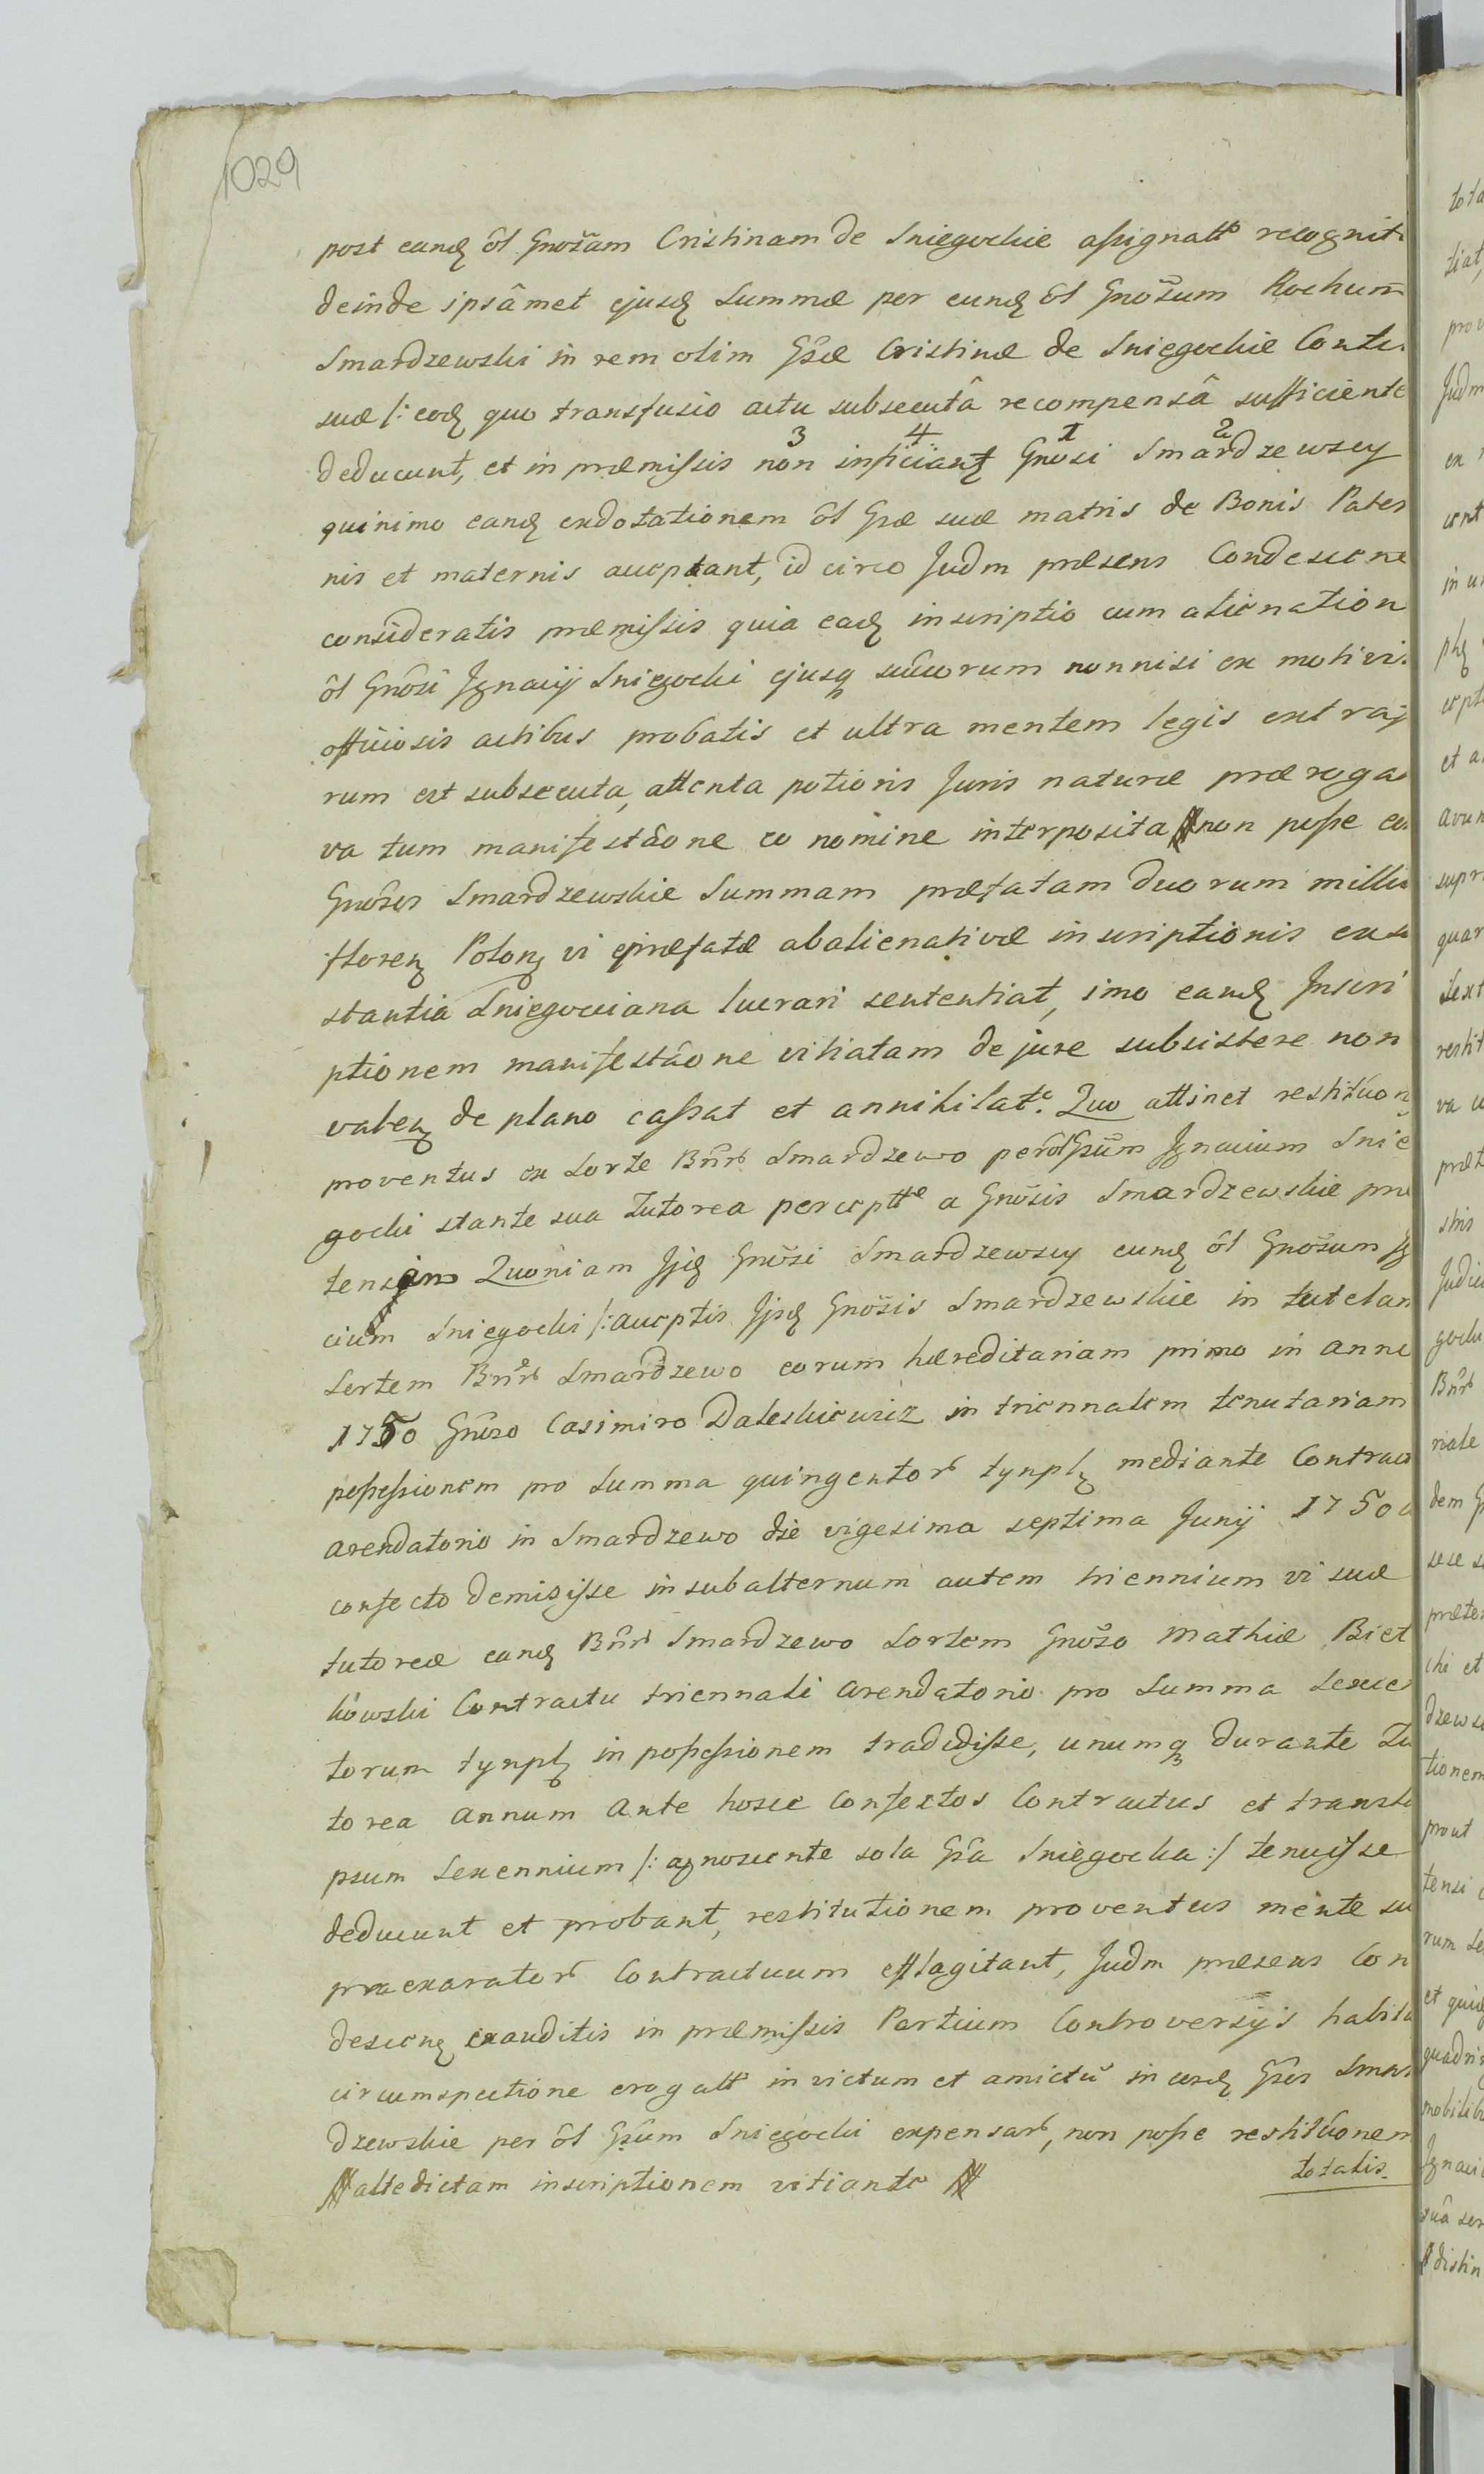 1029
post eand ol Gnosam Cristinam de Sniegockie assignatt recognit
deinde ipsâmet ejusd Summæ per eund ol Gnosum Rochum
Smardzewski in rem olim Gsæ Cristinæ de Sniegockie Conte
suæ /: eod quo transfusio actu subsecutâ recompensâ sufficiente
3 4 1 2
deducunt, et in præmissis non inficiant Gnosi Smardzewscy
quinimo eand exdotationem ol Gsæ suæ matris de Bonis Pater
nis et maternis acceptant, id circo Judm præsens Condescen
consideratis præmissis quia ead inscriptio cum alienation
ol Gnosi Ignacij Sniegocki ejusq succorum nonnisi ex motivis
officiosis actibus probatis et ultra mentem legis extraj
rum est subsecuta, attenta potioris Juris naturæ præroga
va tum manifestaone eo nomine interposita # non posse eo
Gnosos Smardzewskie Summam præfatam duorum milliu
floren Polon vi præfatæ abalienativæ inscriptionis exsu
stantia Sniegocciana lucrari sententiat, imo eand Inscri
ptionem manifestaone vitiatam de jure subsistere non
valen de plano cassat et annihilat. Quo attinet restituon
proventus ex Sorte Bnrb Smardzewo per ol Gsum Ignacium Snie
gocki stante sua Tutorea perceptt a Gnosis Smardzewskie præ
tensan Quoniam Ijd Gnosi Smardzewscy eund ol Gnosum Ig
cium Sniegocki /: acceptis Ijsd Gnosis Smardzewskie in tutelam
Sortem Bnrb Smardzewo eorum hæreditariam primo in anno
1750 Gnoso Casimiro Daleskiewicz in triennalem tenutariam
possessionem pro Summa quingentorb tynph mediante Contrac
arendatorio in Smardzewo die vigesima septima Junij 1750
confecto demisisse in subalternum autem triennium vi suæ
tutoreæ eand Bnrb Smardzewo Sortem Gnoso Mathiæ Biet
kowski Contractu triennali arendatorio pro Summa Sexcen
torum tynph in possessionem tradidisse, unumq durante Tu
torea annum ante hosce Confectos Contractus et transla
psum Sexennium /: agnoscente sola Gsa Sniegocka :/ tenuisse
deducunt et probant, restitutionem proventus mente su
præexaratorb Contractuum efflagitant, Judm præsens Con
descen exauditis in præmissis Partium Controversijs habita
circumspectione erogatt in victum et amictu in eosd Gsos Smar
dzewskie per ol Gsum Sniegocki expensarb, non posse restituonem
# altedictam inscriptionem vitiante #
totalis